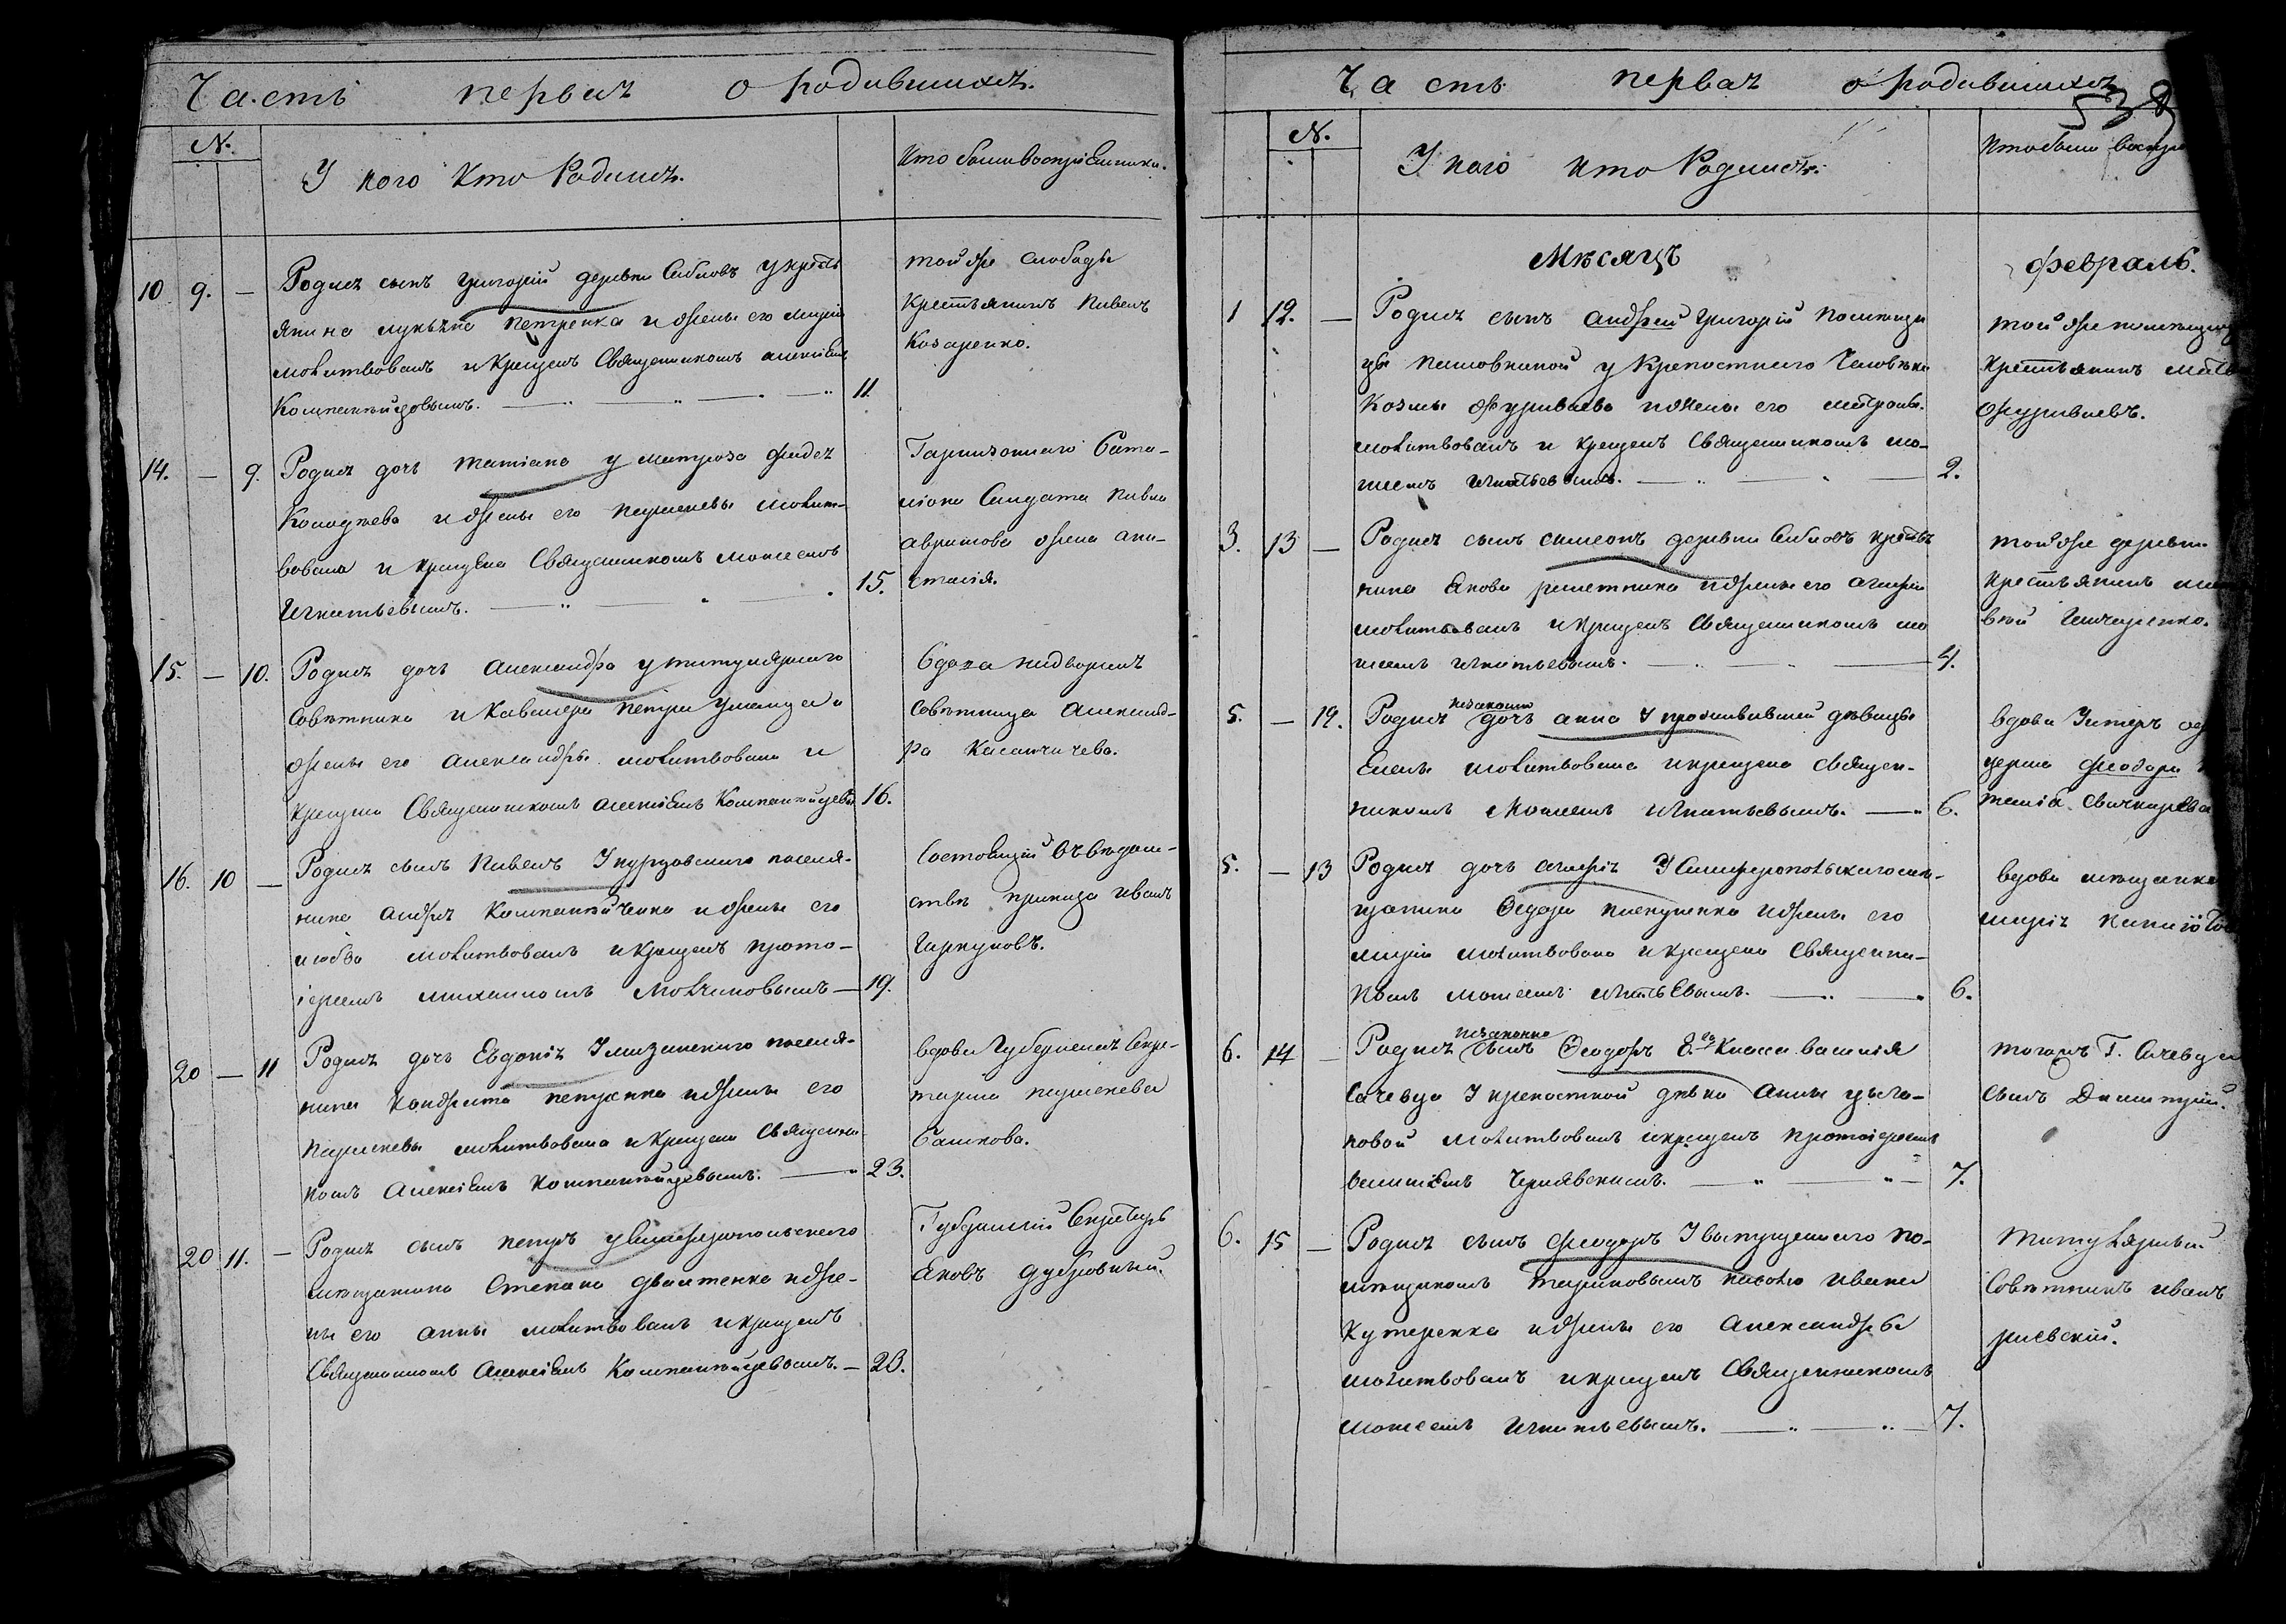 Часть первая о родившихся.
N.
У кого кто Родился.
Кто были восприемники.
10 9. — Родился сынъ Григорій деревни Сабловъ у крестъ
янина Петренка и жены его Маріи
молитвованъ и крещенъ Священникомъ Алексіемъ
Компанейцовымъ. 11.
той же слободы
Крестьянинъ Павелъ
Козаренко.
14. — 9. Родилась дочь Татіана у матроза
и жены его Параскевы молит-
вована и крещена Священникомъ Моисеемъ
Игнатьевымъ. 15.
Гарнизоннаго Бата-
ліона Солдата Павла
жена Ана-
стасія.
15. — 10. Родилась дочь Александра у титулярнаго
Совѣтника и Кавалера Петра
жены его Александры молитвована и
крещена Священникомъ Алексіемъ Компанейцевы 16.
вдова надворная
Совѣтница Александ-
ра Касаничева.
16. 10 — Родился сынъ Павелъ У курцовскаго поселя-
нина Андрея Компанейченка и жены его
молитвованъ и крещенъ прото-
іереемъ Михаиломъ Молчановымъ — 19.
Состоящій въ вѣдом-
ствѣ приказа Иванъ
20 — 11 Родилась дочь Евдокія У мазанскаго поселя-
нина Кондрата Петренка и жены его
Параскевы молитвована и крещена Священни-
комъ Алексіемъ Компанейцевымъ. 23.
вдова Губернская Секре-
тарша Параскева
Башкова.
20 11. — Родился сынъ Петръ у Симферопольскаго
мѣщанина Степана и же-
ны его Анны молитвованъ и крещенъ
Священникомъ Алексіемъ Компанейцевымъ. — 23.
Губернскій Секретарь
Яковъ Дубровный.
Часть первая о родившихся
538
N.
У кого кто Родился.
Кто были воспри
Мѣсяцъ февраль.
1 12. — Родился сынъ Андрей Григорій помѣщи
цы у Крепостнаго Человѣка
Козмы Журавлева и жены его Матроны
молитвованъ и крещенъ Священникомъ Мо-
исеемъ Игнатьевымъ. 2.
той же помѣщицы
Крестьянинъ
Журавлевъ.
3. 13 — Родился сынъ Симеонъ деревни Сабловъ крестья
нина Якова решетника и жены его Агафіи
молитвованъ и крещенъ Священникомъ Мо
исеемъ Игнатьевымъ. 4.
той же деревни
Крестьянинъ
вѣй
5. — 12. Родилась незаконно дочь Анна у проживавшей дѣвицы
Елены молитвована и крещена Священ-
никомъ Моисеемъ Игнатьевымъ. 6.
вдова Унтеръ оф
церша
5. — 13 Родилась дочь Агафія У Симферопольскаго мѣ-
щанина и жены его
Маріи молитвована и крещена Священни-
комъ Моисеемъ Игнатьевымъ. 6.
вдова мѣщанка
Марія
6. 14 — Родился незаконно сынъ Ѳеодоръ 8го Класса Василія
Сачевца У крепостной дѣвки Анны
новой молитвованъ и крещенъ протоіереемъ
Василіемъ Чернявскимъ. 7.
тогожъ Г. Сачевца
сынъ Димитрій.
6. 15 — Родился сынъ Феодоръ У выпущеннаго по-
мѣщикомъ на волю Ивана
Кутеренка и жены его Александры
молитвованъ и крещенъ Священникомъ
Моисеемъ Игнатьевымъ. 7.
Титулярный
Совѣтникъ Иванъ